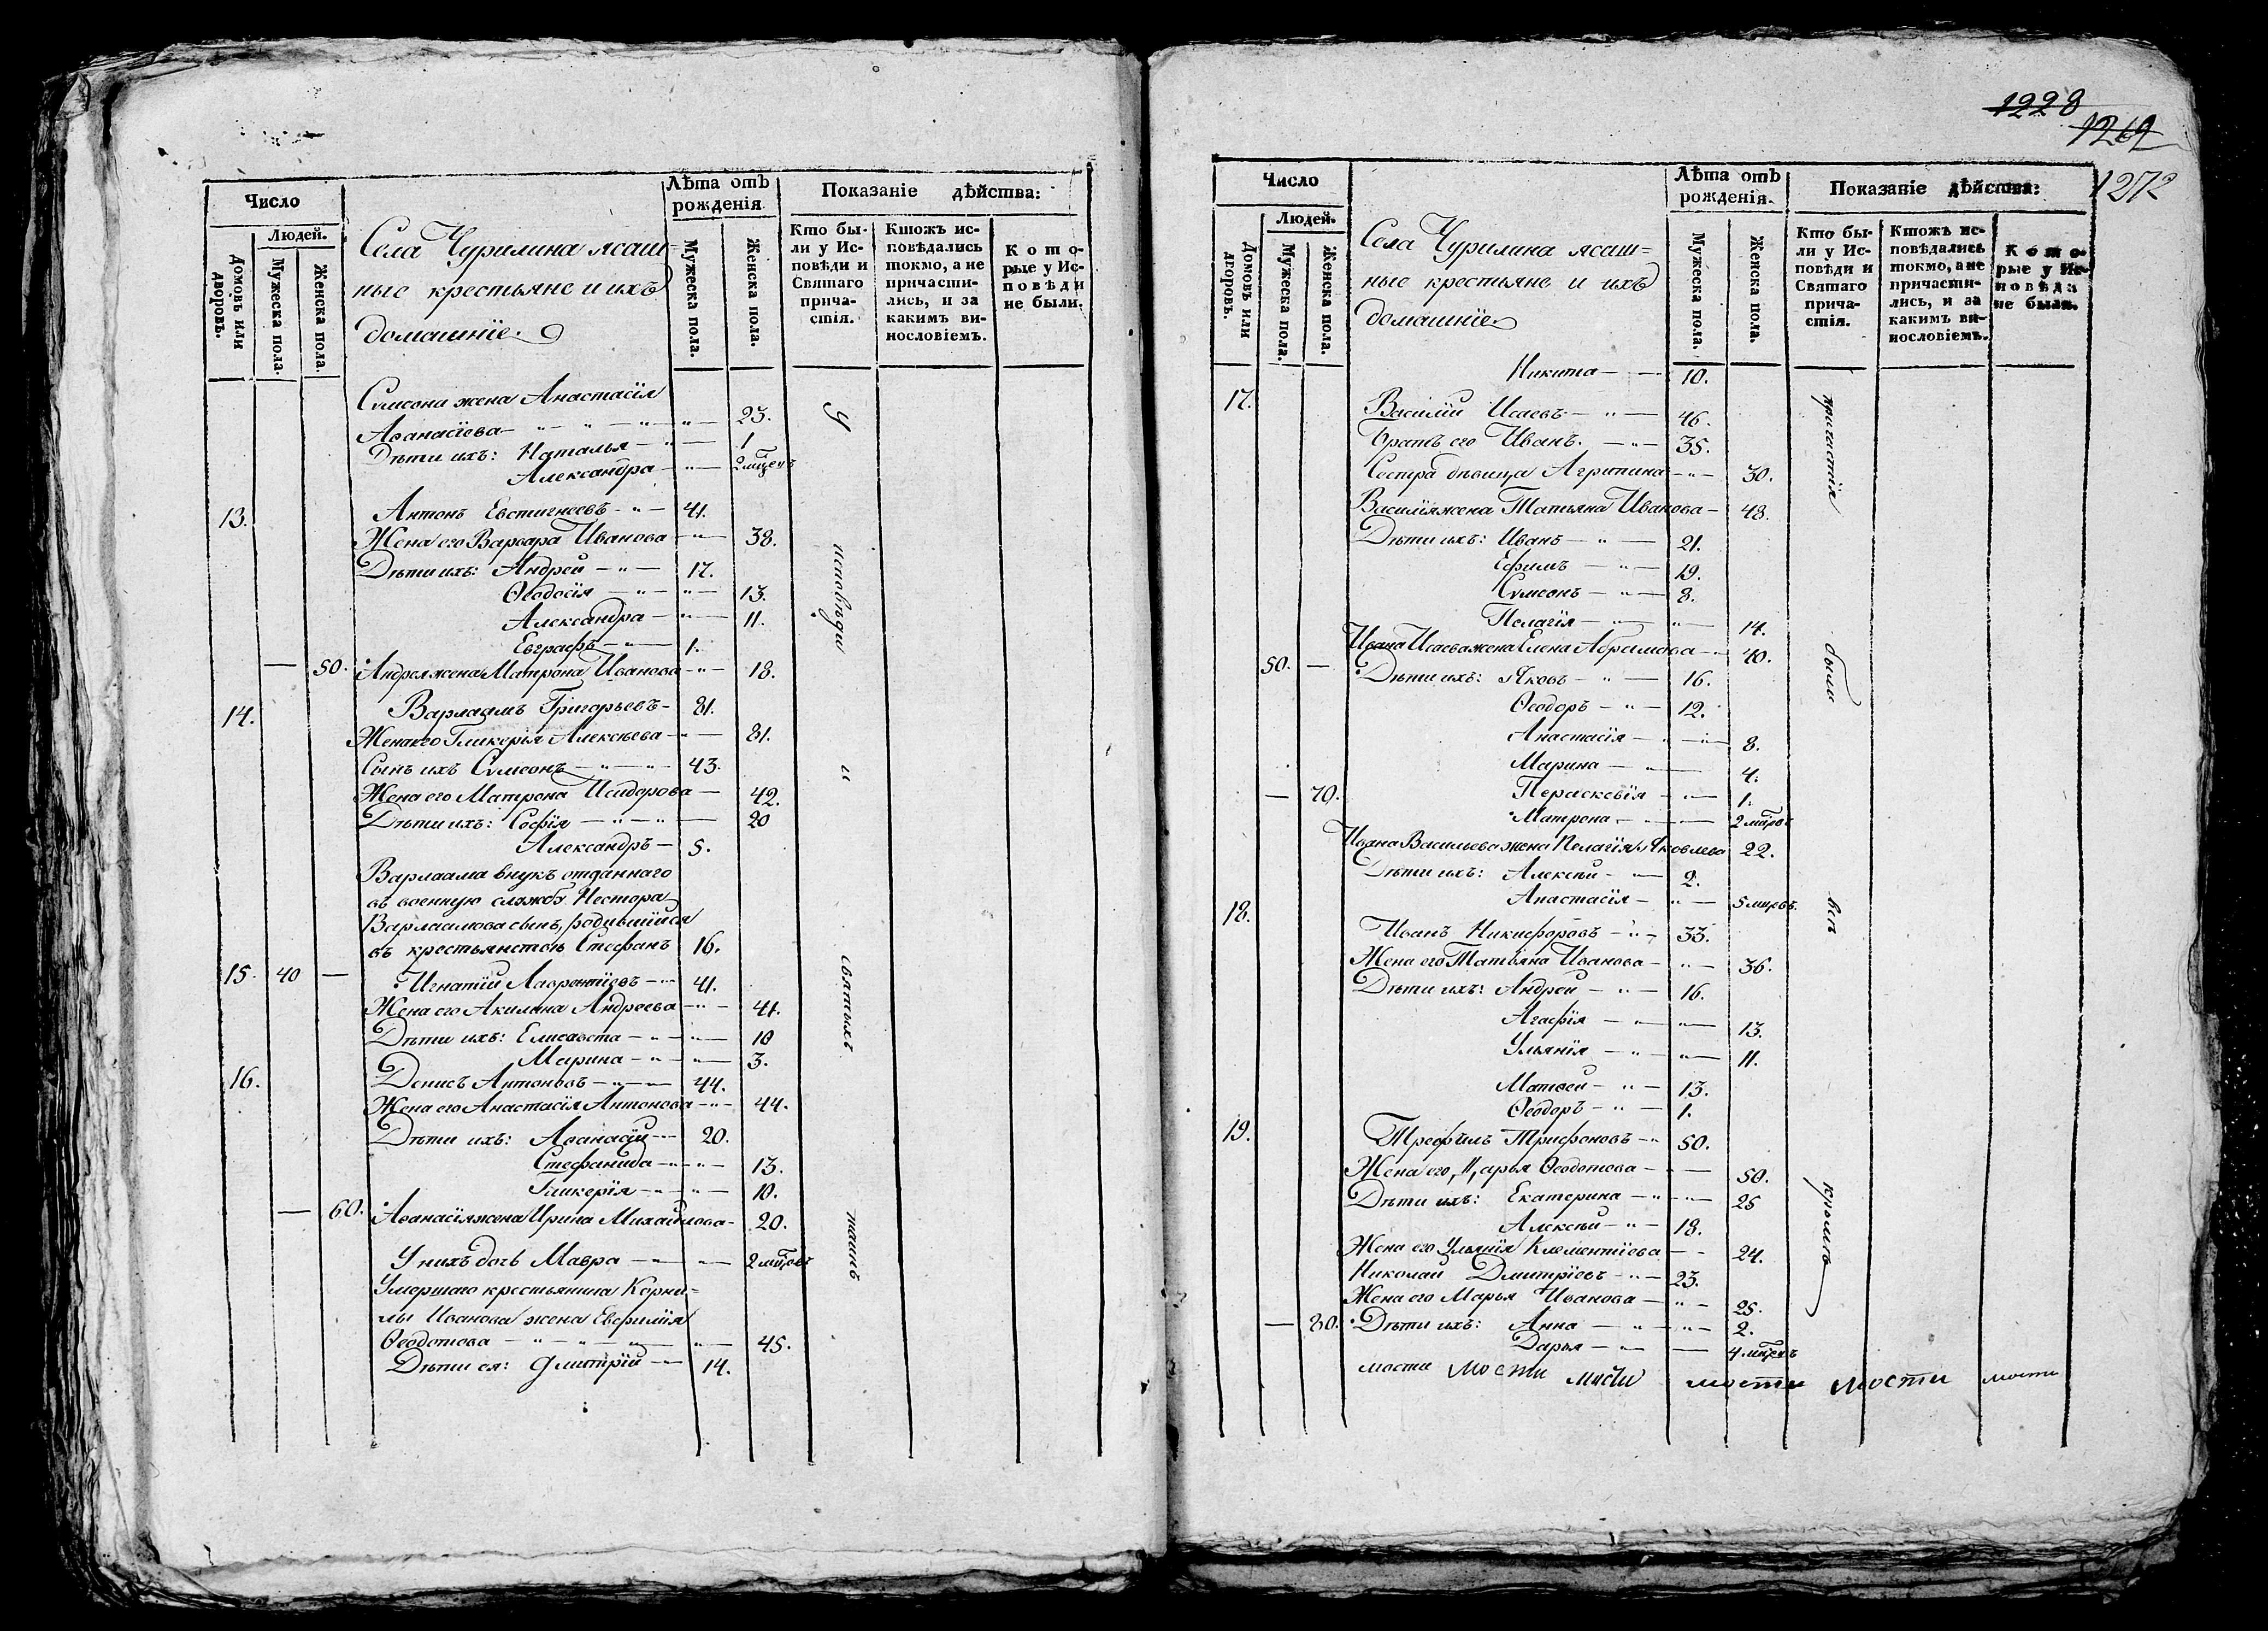 Число
Людей.
Домовъ или дворовъ.
Мужеска пола.
Женска пола.
Села Чурилина ясаш=
ные крестьяне и ихъ
домашніе
Лѣта отъ рожденія
Мужеска пола.
Женска пола.
Показаніе дѣйства:
Кто бы-
ли у Ис-
повѣди и
Святаго
прича-
стія.
Ктожъ ис-
повѣдались
токмо, а не
причасти-
лись, и за
какимъ ви-
нословіемъ.
Кото-
рые у Ис-
повѣди
не были.
Сѵмеона жена Анастасія
Аѳанасіева — " — " — " — " — 23.
Дѣти ихъ: Наталья — " — 1
Александра — " — 2 мцевъ
13. Антонъ Евстигнеевъ — " — 41.
Жена его Варвара Иванова — " — 38.
Дѣти ихъ: Андрей — " — 17.
Ѳеодосія — " — " — 13.
Александра — " — 11.
Евграфъ — " — 1.
— 50. Андрея жена Матрона Иванова — " — 18.
14. Варлаамъ Григорьевъ — 81.
Жена его Гликерія Алексѣева — " — 81.
Сынъ ихъ Сѵмеонъ — " — " — 43.
Жена его Матрона Исидорова — 42.
Дѣти ихъ: Софія — " — " — 20
Александръ — 5.
Варлаама внукъ отданнаго
въ военную службу Нестора
Варлаамова сынъ, родившійся
въ крестьянствѣ Стефанъ 16.
15. 40 — Игнатій Лаврентіевъ — " — 41.
Жена его Акилина Андреева — " — 41.
Дѣти ихъ: Елисавета — " — " — 10
Марина — " — " — 3.
16. Денисъ Антоновъ — " — " — 44.
Жена его Анастасія Антонова — " — 44.
Дѣти ихъ: Аѳанасій — " — 20.
Стефанида — " — " — 13.
Гликерія — " — " — 10.
— 60. Аѳанасія жена Ирина Михайлова — 20.
У нихъ дочь Мавра — " — " — 2 мцовъ
Умершаго крестьянина Корни=
лы Иванова жена Евфимія
Ѳеодотова — " — " — " — " — 45.
Дѣти ея: Дмитрій — " — 14.
У
исповѣди
и
святыхъ
таинъ
1228
1262
1272
Число
Людей.
Домовъ или дворовъ.
Мужеска пола.
Женска пола.
Села Чурилина ясаш=
ные крестьяне и ихъ
домашніе
Лѣта отъ рожденія.
Мужеска пола.
Женска пола.
Показаніе дѣйства:
Кто бы-
ли у Ис-
повѣди и
Святаго
прича-
стія.
Ктожъ ис-
повѣдались
токмо, а не
причасти-
лись, и за
какимъ ви-
нословіемъ.
Кото-
рые у Ис-
повѣди
не были.
Никита — — 10.
17. Василій Исаевъ — " — 46.
Братъ его Иванъ. — " — 35.
Сестра дѣвица Агрипина — " — 30.
Василія жена Татьяна Иванова — 48.
Дѣти ихъ: Иванъ — " — 21.
Ефимъ — " — 19.
Сѵмеонъ — " — 8.
Пелагія — " — " — 14.
Ивана Исаева жена Елена Абрамова — " — 40.
50. — Дѣти ихъ: Яковъ — " — 16.
Ѳеодоръ — " — 12.
Анастасія — " — " — 8.
Марина — " — 4.
— 70. Параскевія — " — 1.
Матрона — " — 2 мцовъ
Ивана Васильева жена Пелагія Яковлева 22.
Дѣти ихъ: Алексѣй — " — 2.
Анастасія — " — 5 мцовъ.
18. Иванъ Никифоровъ — " — 33.
Жена его Татьяна Иванова — " — 36.
Дѣти ихъ: Андрей — " — 16.
Агафія — " — " — 13.
Ульянія — " — " — 11.
Матвей — " — 13.
Ѳеодоръ — " — 1.
19. Трефилъ Трифоновъ — " 50.
Жена его Марья Ѳеодотова — " — 50.
Дѣти ихъ: Екатерина — " — " — 25
Алексѣй — " — 18.
Жена его Ульянія Климентіева — - 24.
Николай Дмитріевъ — " — 23.
Жена его Марья Иванова — " — 25.
— 80. Дѣти ихъ: Анна — " — " — 2.
Дарья — " — 4 мцевъ
причастія
были
всѣ
кромѣ
мости мости мости мости мости мости